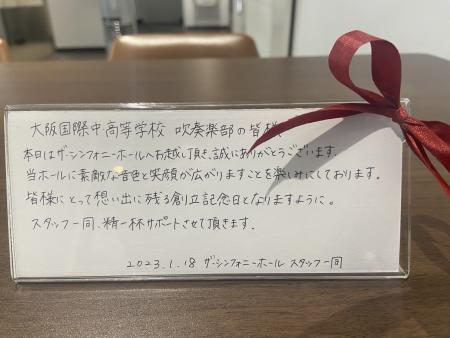 大阪国際中高等学校 吹奏楽部の皆様
本日はザ・シンフォニーホールへお越し頂き、誠にありがとうございます。
当ホールに素敵な音色と笑顔が広がりますことを楽しみにしております。
皆様にとって想い出に残る創立記念日となりますように。
スタッフ一同、精一杯サポートさせて頂きます。
2023.1.18 ザ・シンフォニーホール スタッフ一同